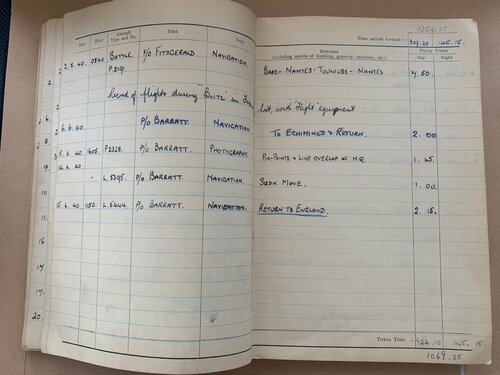 1054.35
Time carried forward:— 909.20 145.15.
Date Hour Aircraft Type and No. Pilot Duty REMARKS (Including results of bombing, gunnery, exercises, etc.) Flying Times Day Night
2.5.40 0840 BATTLE. P.2191. F/O FITZGERALD. NAVIGATION. BASE-NANTES-TOULOUSE-NANTES 4.50
Record of flights during "BLITZ" in lost, with "Flight" equipment
6.6.40. P/O BARRATT NAVIGATION TO ECHIMINES & RETURN. 2.00
1605 P2328. P/O BARRATT. PHOTOGRAPHY. PIN-POINTS & LINE OVERLAP OF H.Q. 1.45
14.6.40. - L.5395. P/O BARRATT. NAVIGATION SQDN. MOVE. 1.00
15.6.40 1150. P/O BARRATT. NAVIGATION. RETURN TO ENGLAND. 2.15.
TOTAL TIME 924.10 145.15.
1069.25
2
6.
8.
9.
10.
11.
14.
17.
20.